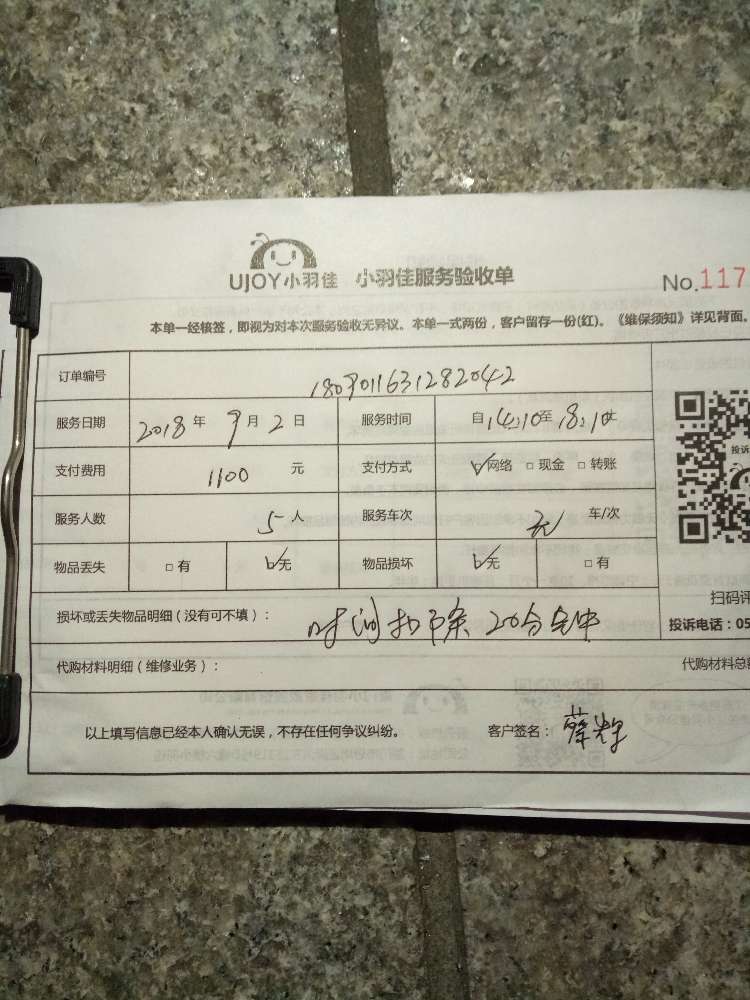 UJOY小羽佳 小羽佳服务验收单 No.117
本单一经核签，即视为对本次服务验收无异议。本单一式两份，客户留存一份(红)。《维保须知》详见背面。
订单编号 1809011631282042
服务日期 2018年9月2日 服务时间 自14:10至18:10止
支付费用 1100元 支付方式 ☑网络 □现金 □转账
服务人数 5人 服务车次 无 车/次
物品丢失 □有 ☑无 物品损坏 ☑无 □有
损坏或丢失物品明细（没有可不填）： 时间扣除20分钟
扫码评
投诉电话：05
代购材料明细（维修业务）： 代购材料总额
以上填写信息已经本人确认无误，不存在任何争议纠纷。 客户签名：
投诉